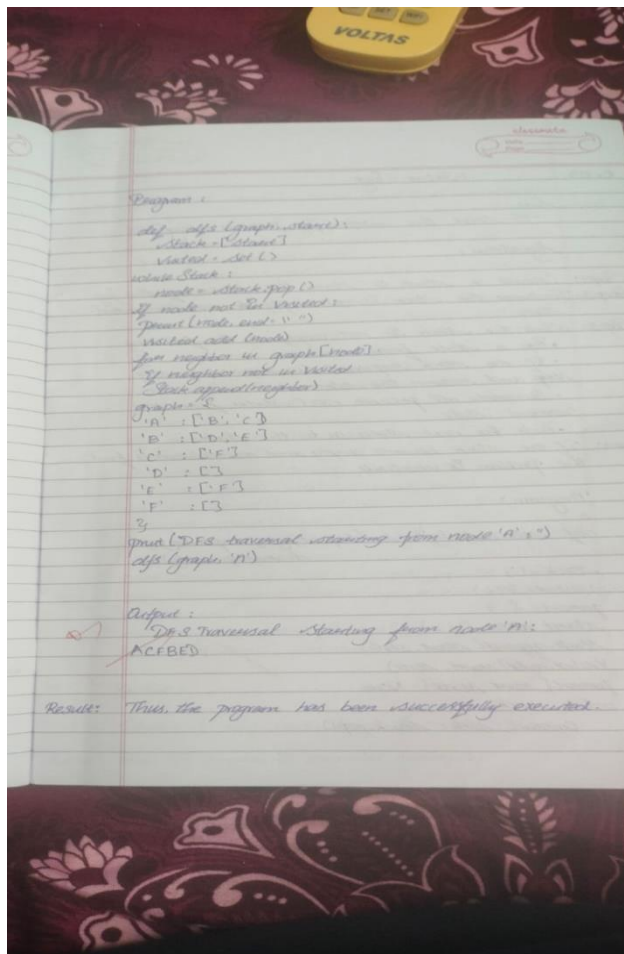 VOLTAS
classmate
Date
Page
Program :
def dfs (graph, start):
Stack = [start]
Visited = set ()
while Stack :
node = Stack.pop ()
If node not in visited :
print (node, end = " ")
visited add (node)
for neighbor in graph [node].
If neighbor not in visited
Stack append(neighbor)
graph = {
'A' : ['B', 'C']
'B' : ['D', 'E']
'C' : ['F']
'D' : []
'E' : ['F']
'F' : []
}
print ( DFS traversal starting from node 'A' : ")
dfs (graph, 'A')
Output :
DFS Traversal Starting from node 'A':
ACFBED
Result: Thus, the program has been successfully executed.